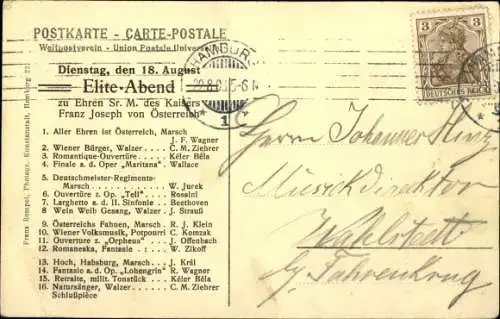 POSTKARTE - CARTE-POSTALE
Weltpostverein - Union Postale Univer
Dienstag, den 18. August
Elite-Abend
zu Ehren Sr. M. des Kaisers
Franz Joseph von Österreich
1. Aller Ehren ist Österreich, Marsch
J. F. Wagner
2. Wiener Bürger, Walzer . . C. M. Ziehrer
3. Romantique-Ouvertüre . . Kéler Béla
4. Finale a. d. Oper „Maritana“ . Wallace
5. Deutschmeister-Regiments-
Marsch . . . . W. Jurek
6. Ouvertüre z. Op. „Tell“ . . Rossini
7. Larghetto a. d. II. Sinfonie . Beethoven
8 Wein Weib Gesang, Walzer . J. Strauß
9. Österreichs Fahnen, Marsch . R. J. Klein
10. Wiener Volksmusik, Potpourri C. Komzak
11. Ouverture z. „Orpheus“ . J. Offenbach
12. Romaneska, Fantasie . . W. Zikoff
13. Hoch, Habsburg, Marsch . . J. Král
14. Fantasie a. d. Op. „Lohengrin“ R. Wagner
15. Retraite, milit. Tonstück . Kéler Béla
16. Natursänger, Walzer . . C. M. Ziehrer
Schlußpièce
Franz Rompel, Photogr. Kunstanstalt, Hamburg 22
HAMBURG
1
3 3
DEUTSCHES REICH
Herrn Johannes
Musikdirektor
Wahlstedt
bg Fahrenkrug